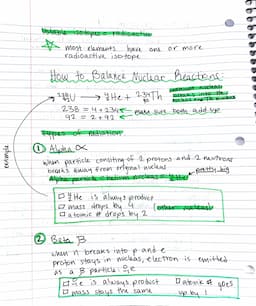 unstable isotope = radioactive
most elements have one or more
radioactive isotope
How to Balance Nuclear Reactions
238 92 U → 4 2 He + 234 90 Th
238 = 4 + 234 ← make sure both add up
92 = 2 + 92
Types of Radiation
① Alpha α
when particle consisting of 2 protons and 2 neutrons
breaks away from original nucleus
Alpha particle = helium nucleus
pretty big
example
4 2 He is always product
mass drops by 4
atomic # drops by 2
② Beta β
when n breaks into p and e
proton stays in nucleus, electron is emitted
as a β particle: 0 -1 e
0 -1 e is always product
atomic # goes
mass stays the same
up by 1